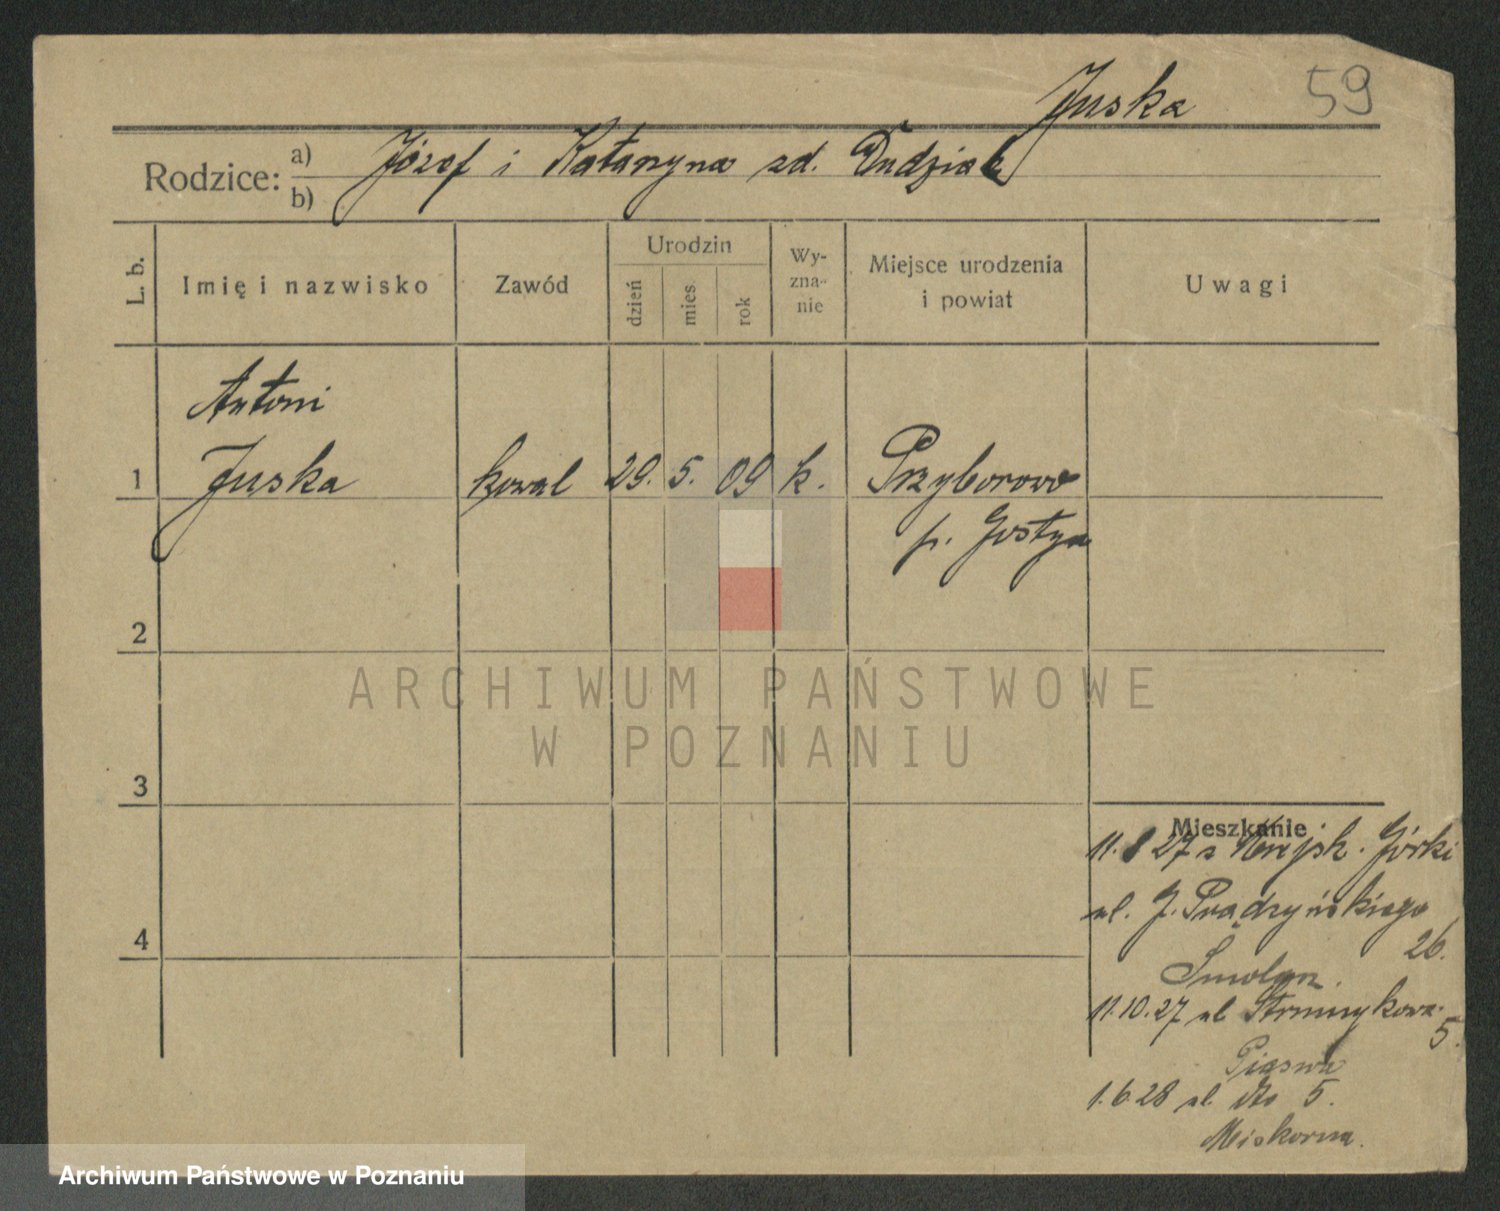 Juska
59
Rodzice:
a) Józef i Katarzyna zd. Dudziak
b)
L. b.
Imię i nazwisko
Zawód
Urodzin
dzień
mies
rok
Wy-
zna-
nie
Miejsce urodzenia
i powiat
Uwagi
Antoni
1 Juska kowal 29. 5. 09 k. Przyborowo
p. Gostyń
2
ARCHIWUM PAŃSTWOWE
W POZNANIU
3
4
Mieszkanie
11.8 27 z Miejsk. Górki
ul. J. Prądzyńskiego
26.
11.10.27 ul Strumykowa
5.
1.6.28 ul. dto 5.
Archiwum Państwowe w Poznaniu